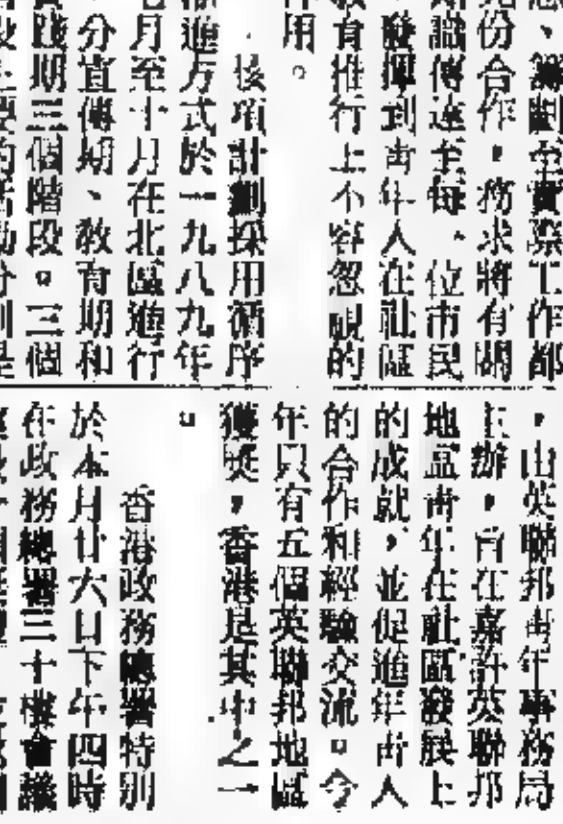 、籌劃至實際工作都
充份合作,務求將有關
知識傳達至每一位市民
,發揮到青年人在社區
教育推行上不容忽視的
作用。
該項計劃採用循序
漸進方式於一九八九年
七月至十月在北區進行
,分宣傳期、教育期和
實踐期三個階段。三個
段主要的活動分別是
,由英聯邦青年事務局
主辦,旨在嘉許英聯邦
地區青年在社區發展上
的成就,並促進年青人
的合作和經驗交流。今
年只有五個英聯邦地區
獲獎,香港是其中之一
。
香港政務總署特別
於本月廿六日下午四時
在政務總署三十樓會議